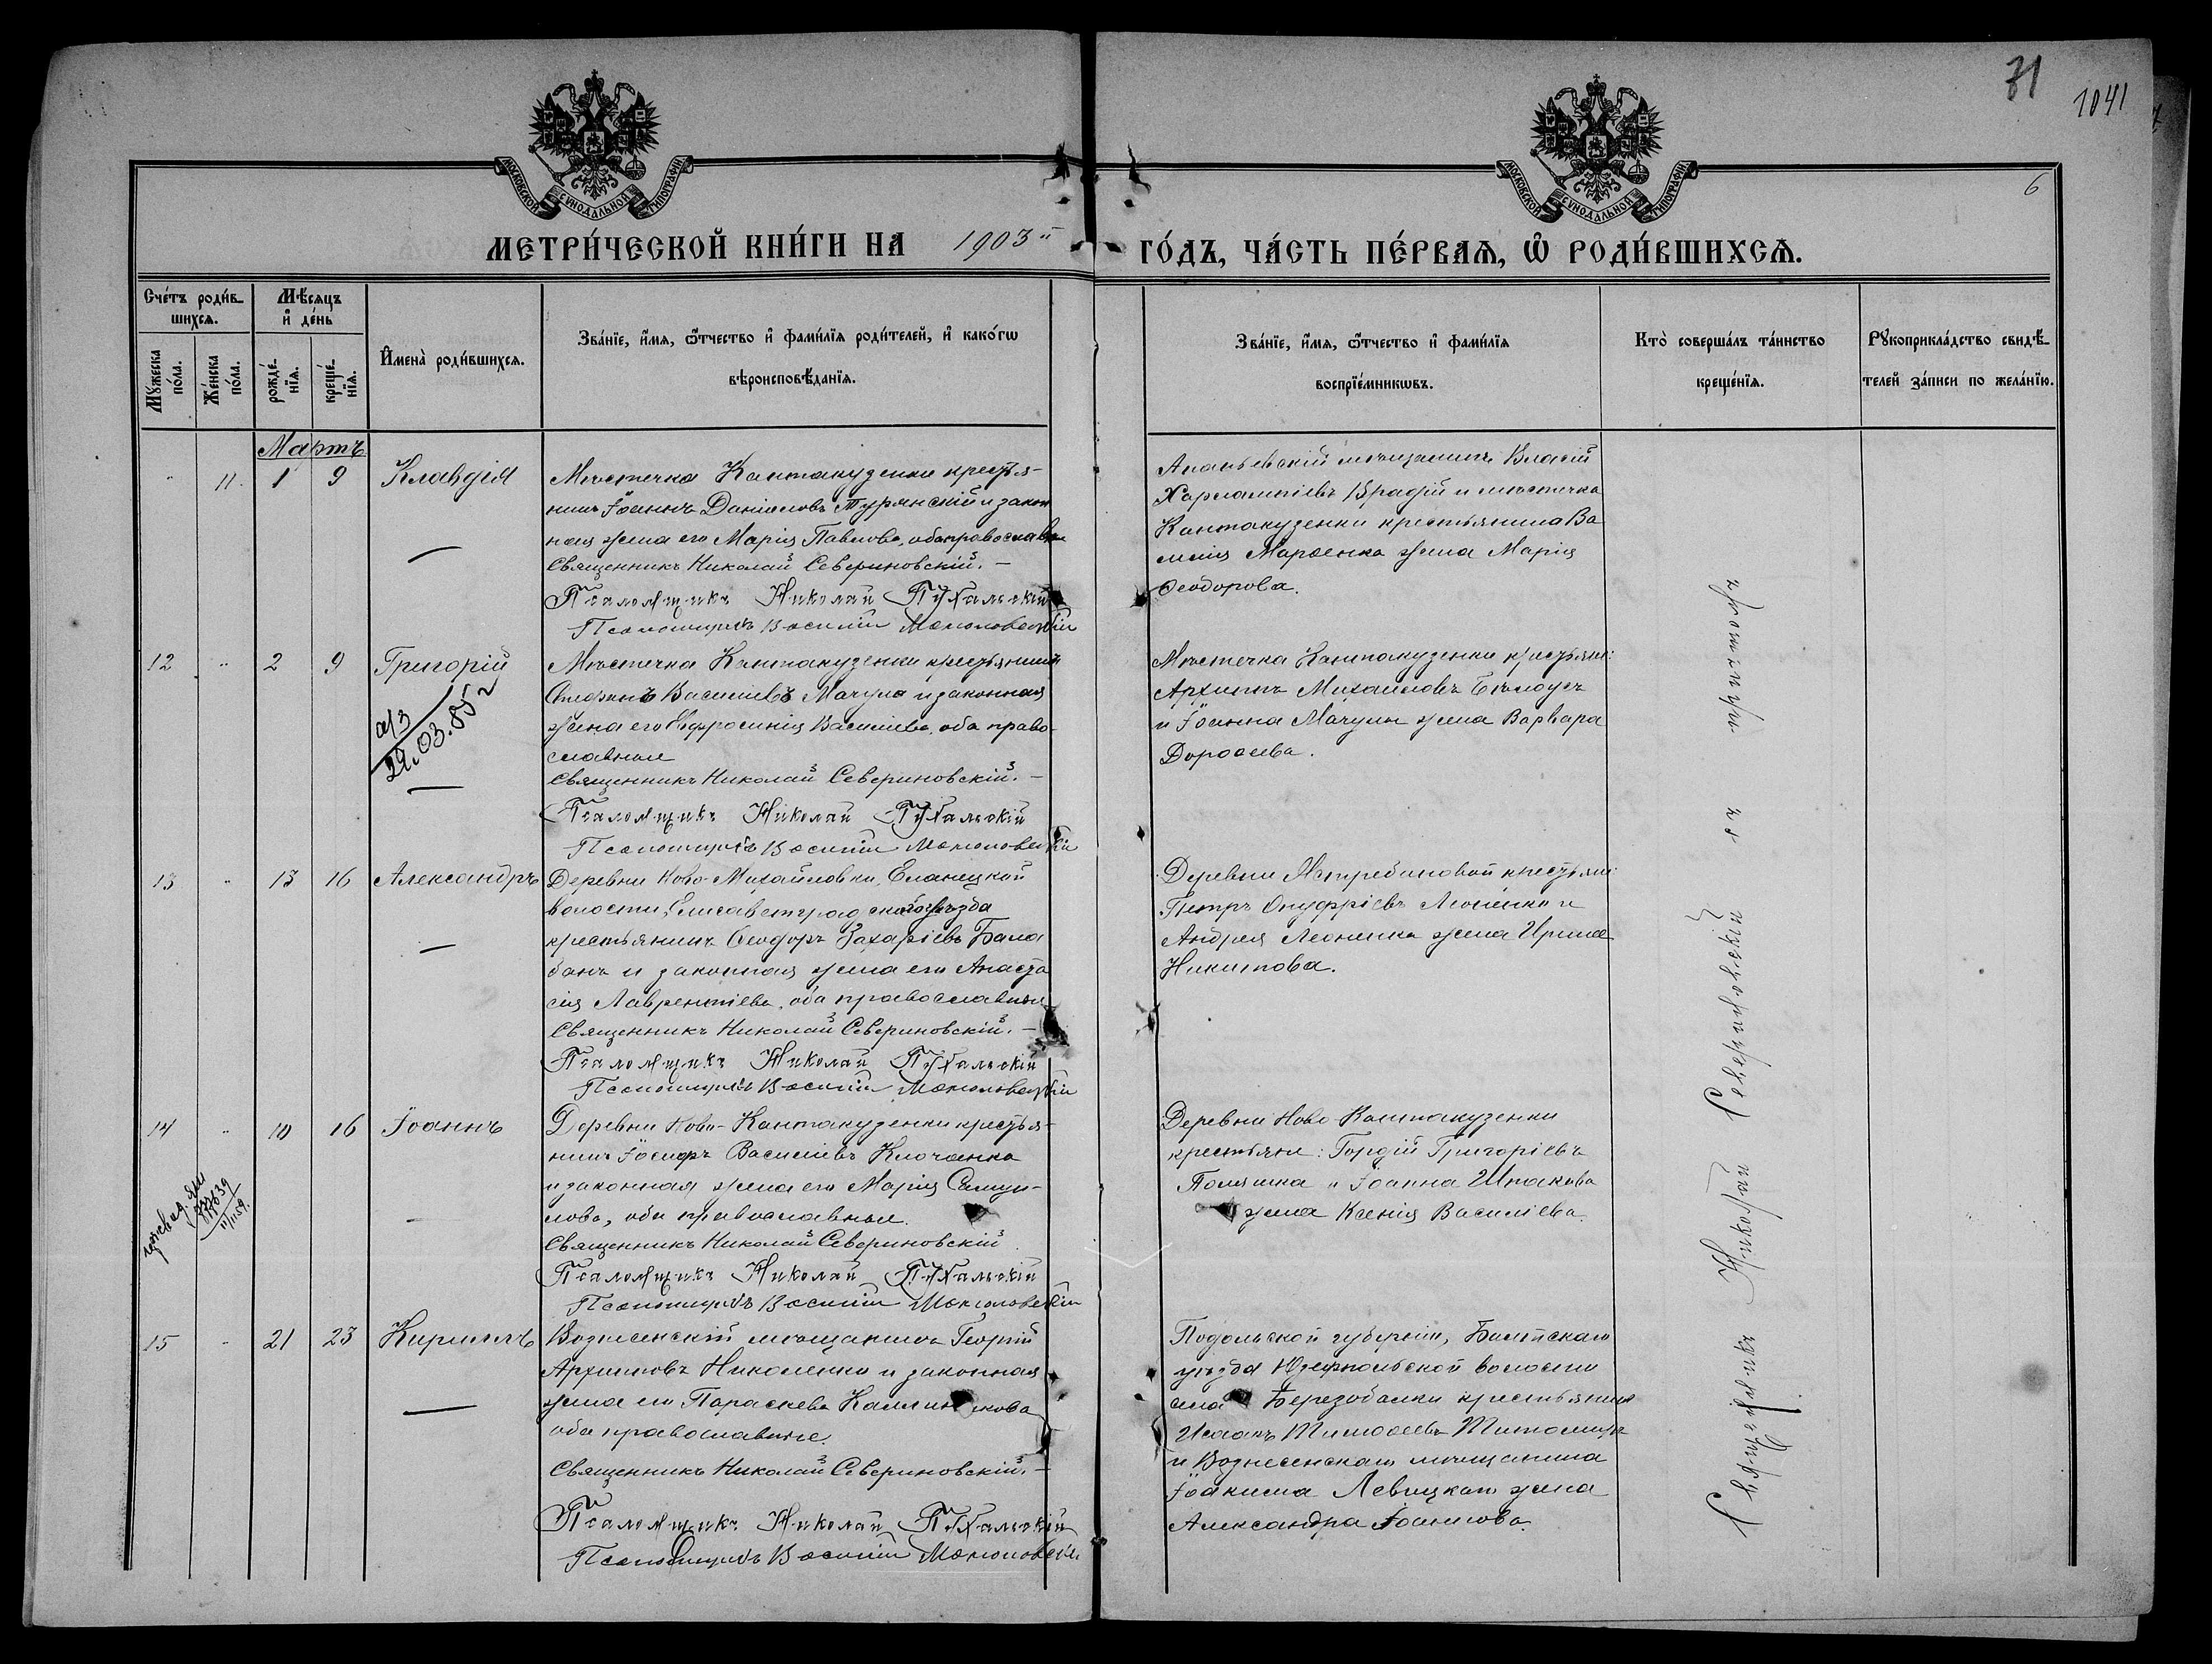 71
1041
6
МОСКОВСКОЙ СѴНОДАЛЬНОЙ ТИПОГРАФІИ
МОСКОВСКОЙ СѴНОДАЛЬНОЙ ТИПОГРАФІИ
МЕТРИ́ЧЕСКОЙ КНИ́ГИ НА 1903й ГО́ДЪ, ЧА́СТЬ ПЕ́РВАЯ, Ѽ РОДИ́ВШИХСѦ.
Сче́тъ роди́в-
шихсѧ.
Мѣ́сяцъ
и҆ де́нь
Мꙋжеска по́ла.
Же́нска по́ла.
рожде́-
нїѧ.
креще́-
нїѧ.
И҆мена̀ роди́вшихсѧ.
Зва́нїе, и҆́мѧ, ѻ҆́тчество и҆ фами́лїѧ роди́телей, и҆ како́гѡ
вѣроисповѣ́данїѧ.
Зва́нїе, и҆́мѧ, ѻ҆́тчество и҆ фами́лїѧ
воспрїе́мникѡвъ.
Кто̀ соверша́лъ та́инство
креще́нїѧ.
Рꙋкоприкла́дство свидѣ́-
телей за́писи по жела́нїю.
Мартъ
" 11. 1 9 Клавдія
Мѣстечка Кантакузенки кресть-
нинъ Іоаннъ Даніиловъ Турянскій и закон
ная жена его Марія Павлова, оба православн
Священникъ Николай Севериновскій. –
Псаломщикъ Николай Пухальскій
Псаломщикъ Василій
Ананьевскій мѣщанинъ Власій
Харлампіевъ Врадій и мѣстечка
Кантакузенки крестьянина Ва
силія Марченка жена Марія
Ѳеодорова.
12 " 2 9 Григорій
29.03.85г
Мѣстечка Кантакузенки крестьянинъ
Стефанъ Василіевъ Мачула и законная
жена его Евфросинія Василіева, оба право-
славные
Священникъ Николай Севериновскій. –
Псаломщикъ Николай Пухальскій
Псаломщикъ Василій
Мѣстечка Кантакузенки крестьян:
Архиппъ Михаиловъ Бѣлоусъ
и Іоанна Мачулы жена Варвара
Дороѳеева.
13 " 13 16 Александръ
Деревни Ново-Михайловки, Еланецкой
волости, Елисаветградскаго уѣзда
крестьянинъ Ѳеодоръ Захаріевъ Бала
банъ и законная жена его Анаста
сія Лаврентіева, оба православные
Священникъ Николай Севериновскій. –
Псаломщикъ Николай Пухальскій
Псаломщикъ Василій
Деревни крестьяне:
Петръ Онуфріевъ и
Андрея Леоненка жена Ирина
Никитова.
14 " 10 16 Іоаннъ
Деревни Ново-Кантакузенки кресть-
нинъ Іосифъ Василіевъ Клочанка
и законная жена его Марія Самуи-
лова, оба православные.
Священникъ Николай Севериновскій
Псаломщикъ Николай Пухальскій
Псаломщикъ Василій
Деревни Ново-Кантакузенки
крестьяне: Гордій Григоріевъ
и Іоанна
жена Ксенія Василіева.
15 " 21 23 Кириллъ
Вознесенскій мѣщанинъ Георгій
Архиповъ Николенко и законная
жена его Параскева
оба православные.
Священникъ Николай Севериновскій. –
Псаломщикъ Николай Пухальскій
Псаломщикъ Василій
Подольской губерніи, Балтскаго
уѣзда Юзефпольской волости
села Березобалки крестьянинъ
Исаакъ Тимоѳеевъ
и Вознесенскаго мѣщанина
Іоакима Левицкаго жена
Александра Іоанновна.
Священникъ Николай Севериновскій съ причтомъ